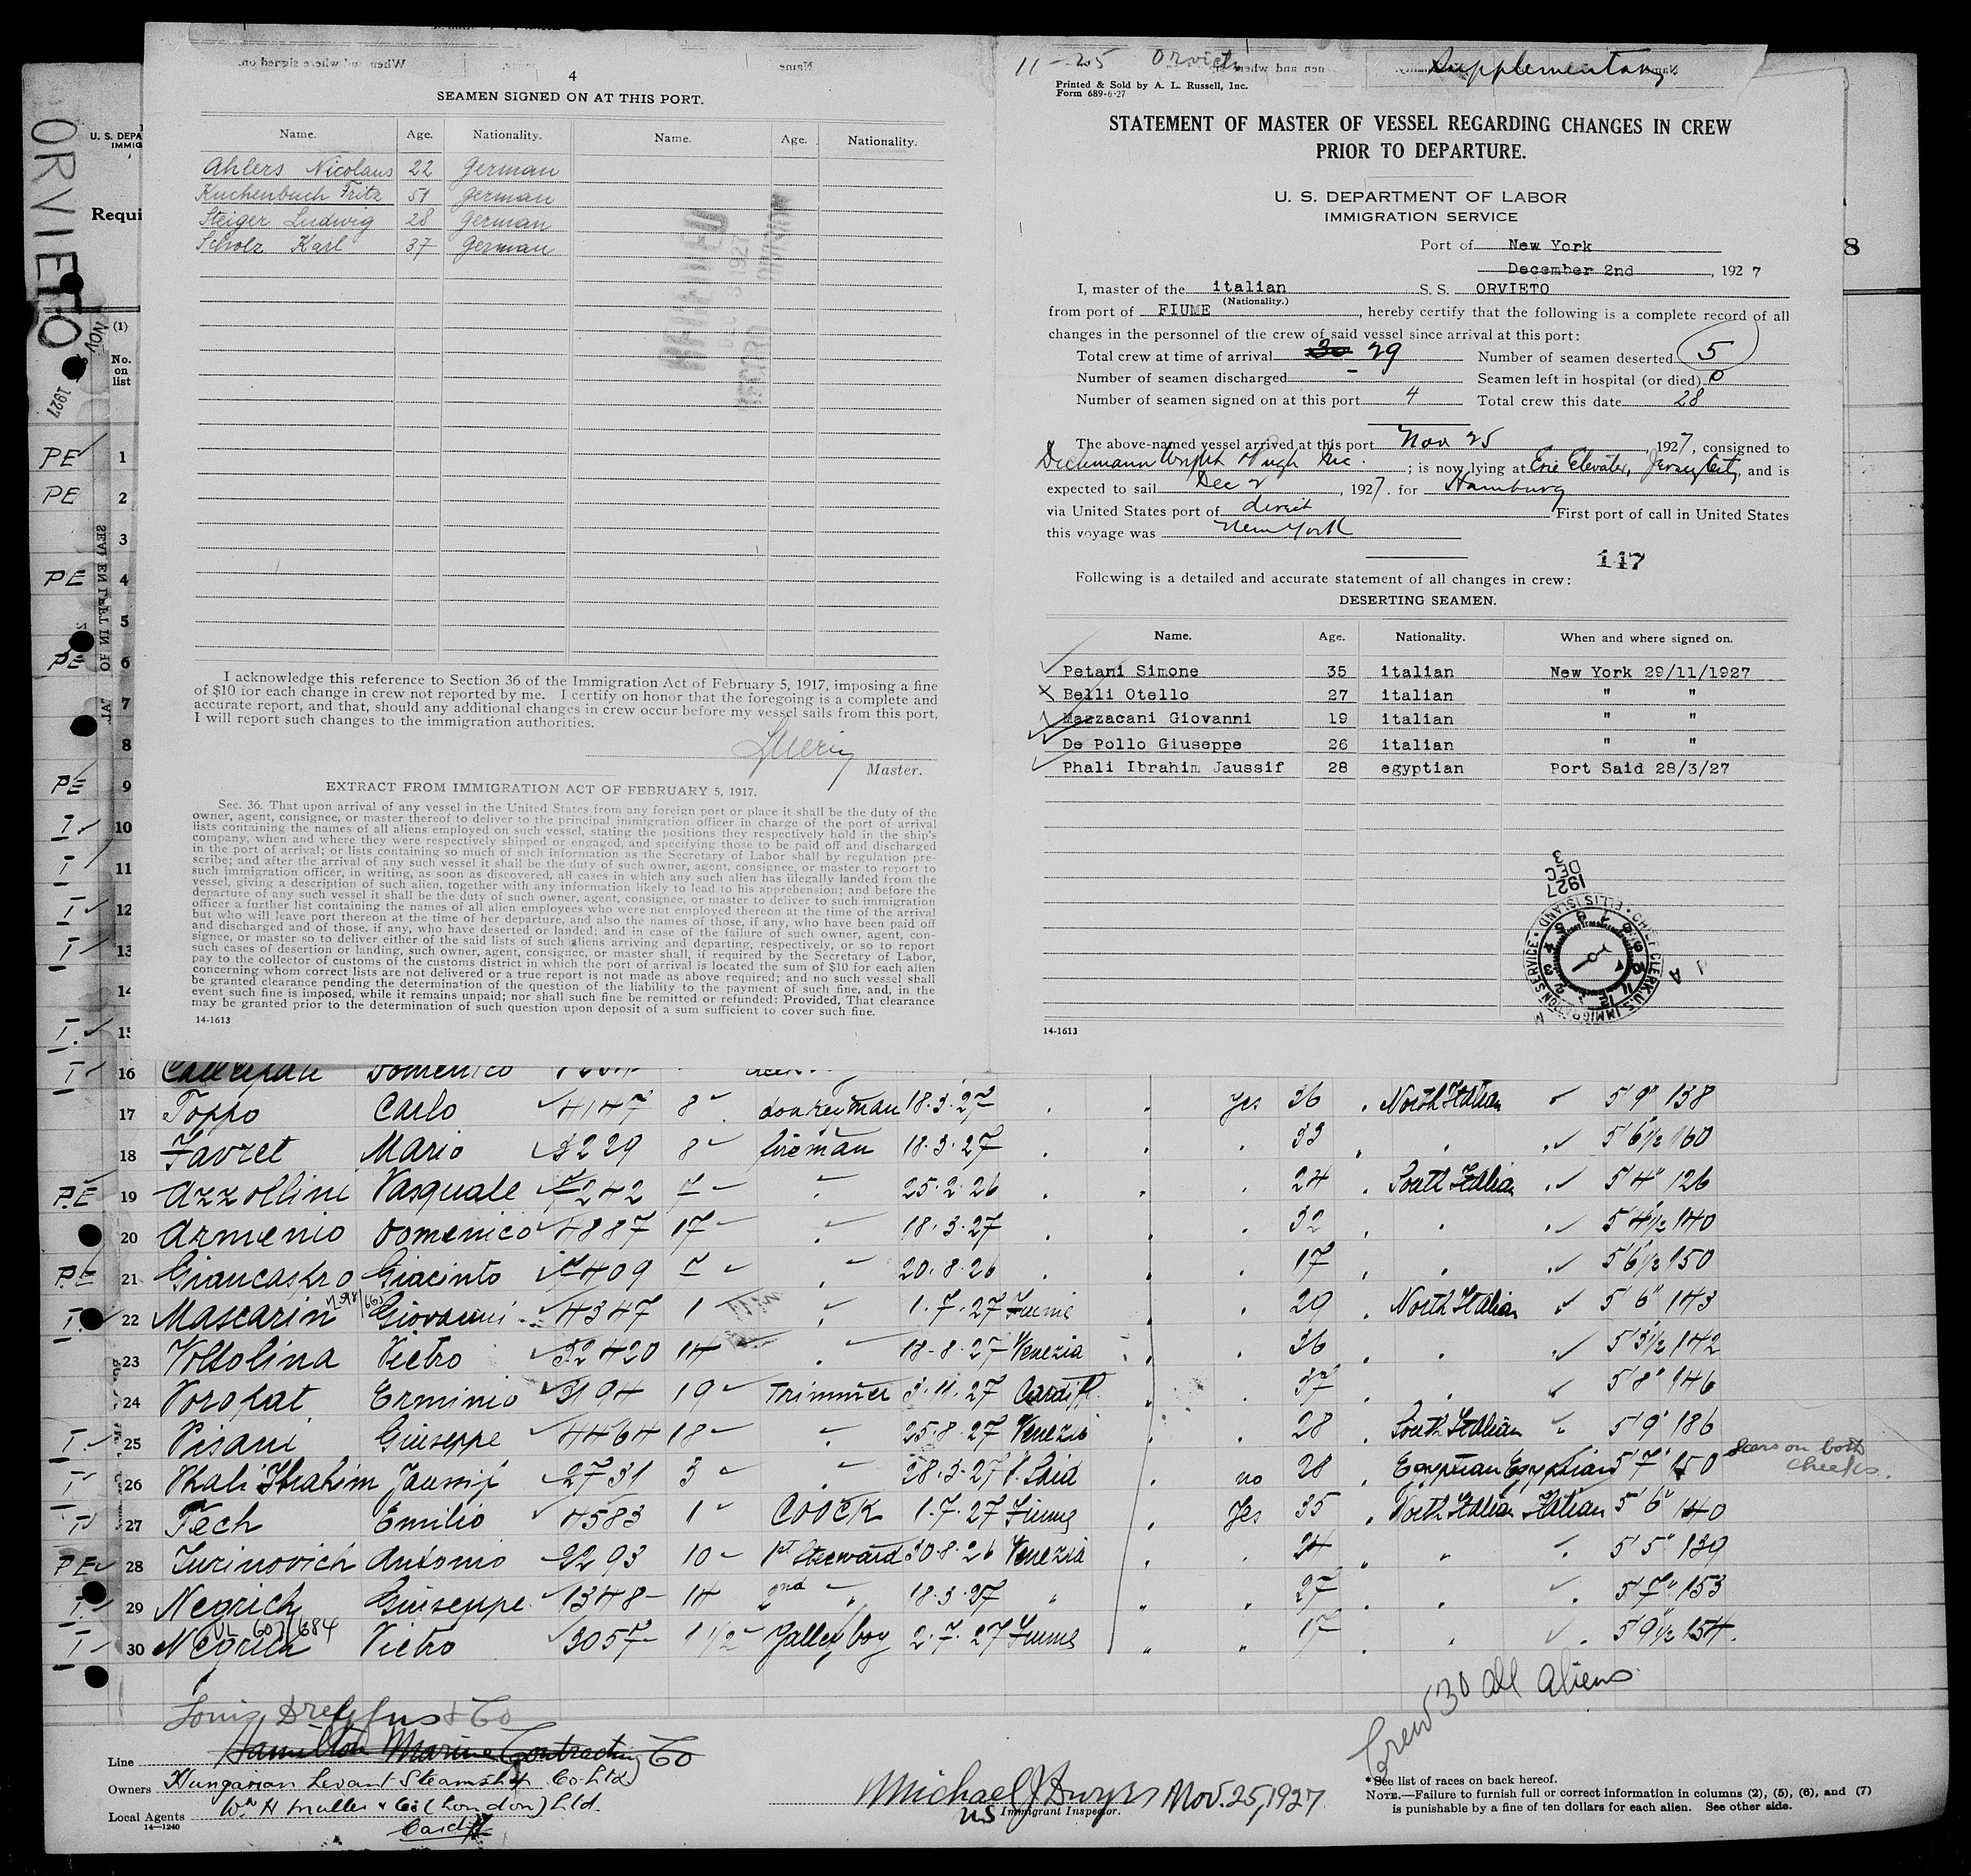 4
SEAMEN SIGNED ON AT THIS PORT.
Name. Age. Nationality. Name. Age. Nationality.
Ahlers Nicolaus 22 German
Kuchenbuch Fritz 51 German
Steiger Ludwig 28 German
Scholz Karl 37 German
I acknowledge this reference to Section 36 of the Immigration Act of February 5, 1917, imposing a fine
of $10 for each change in crew not reported by me. I certify on honor that the foregoing is a complete and
accurate report, and that, should any additional changes in crew occur before my vessel sails from this port,
I will report such changes to the immigration authorities.
Master.
EXTRACT FROM IMMIGRATION ACT OF FEBRUARY 5, 1917.
Sec. 36. That upon arrival of any vessel in the United States from any foreign port or place it shall be the duty of the
owner, agent, consignee, or master thereof to deliver to the principal immigration officer in charge of the port of arrival
lists containing the names of all aliens employed on such vessel, stating the positions they respectively hold in the ship's
company, when and where they were respectively shipped or engaged, and specifying those to be paid off and discharged
in the port of arrival; or lists containing so much of such information as the Secretary of Labor shall by regulation pre-
scribe; and after the arrival of any such vessel it shall be the duty of such owner, agent, consignee, or master to report to
such immigration officer, in writing, as soon as discovered, all cases in which any such alien has illegally landed from the
vessel, giving a description of such alien, together with any information likely to lead to his apprehension; and before the
departure of any such vessel it shall be the duty of such owner, agent, consignee, or master to deliver to such immigration
officer a further list containing the names of all alien employees who were not employed thereon at the time of the arrival
but who will leave port thereon at the time of her departure, and also the names of those, if any, who have been paid off
and discharged and of those, if any, who have deserted or landed; and in case of the failure of such owner, agent, con-
signee, or master so to deliver either of the said lists of such aliens arriving and departing, respectively, or so to report
such cases of desertion or landing, such owner, agent, consignee, or master shall, if required by the Secretary of Labor,
pay to the collector of customs of the customs district in which the port of arrival is located the sum of $10 for each alien
concerning whom correct lists are not delivered or a true report is not made as above required; and no such vessel shall
be granted clearance pending the determination of the question of the liability to the payment of such fine, and, in the
event such fine is imposed, while it remains unpaid; nor shall such fine be remitted or refunded: Provided, That clearance
may be granted prior to the determination of such question upon deposit of a sum sufficient to cover such fine.
14-1613
11-25 Orvieto Supplementary
Printed & Sold by A. L. Russell, Inc.
Form 689-6-27
STATEMENT OF MASTER OF VESSEL REGARDING CHANGES IN CREW
PRIOR TO DEPARTURE.
U. S. DEPARTMENT OF LABOR
IMMIGRATION SERVICE
Port of New York
December 2nd, 1927
I, master of the italian S. S. ORVIETO
(Nationality.)
from port of FIUME, hereby certify that the following is a complete record of all
changes in the personnel of the crew of said vessel since arrival at this port:
Total crew at time of arrival 30 29 Number of seamen deserted 5
Number of seamen discharged - Seamen left in hospital (or died) 0
Number of seamen signed on at this port 4 Total crew this date 28
The above-named vessel arrived at this port Nov 25, 1927, consigned to
Dechmann Wright Pugh Inc.; is now lying at Erie Elevator, Jersey City, and is
expected to sail Dec 2, 1927. for Hamburg
via United States port of direct First port of call in United States
this voyage was New York
117
Following is a detailed and accurate statement of all changes in crew:
DESERTING SEAMEN.
Name. Age. Nationality. When and where signed on.
Petani Simone 35 italian New York 29/11/1927
Belli Otello 27 italian " "
Mazzacani Giovanni 19 italian " "
De Pollo Giuseppe 26 italian " "
Phali Ibrahim Jaussif 28 egyptian Port Said 28/3/27
1927 DEC 3
CHIEF CLERK U.S. IMMIGRATION SERVICE · ELLIS ISLAND
14-1613
ORVIETO
NOV 1927
U. S. DEPA
IMMIG
Requi
8
(1)
No.
on
list
PE 1
PE 2
3
PE 4
5
PE 6
7
8
PE 9
I 10
I 11
I 12
I 13
14
I 15
I 16 Domenico
17 Toppo Carlo 4147 8 donkeyman 18.3.27 Yes 36 North Italian 5'9" 138
18 Favret Mario 3229 8 fireman 18.3.27 33 5'6½ 160
PE 19 Azzollini Pasquale 7242 7 25.2.26 24 South Italian 5'4" 126
20 Armenio Domenico 4887 17 18.3.27 32 5'4½ 140
PE 21 Giancaspro Giacinto 409 20.8.26 17 5'6½ 150
I 22 Mascarin Giovanni 4347 1 1.7.27 Fiume 29 North Italian 5'6" 143
23 Voltolina Pietro 32420 14 18-8-27 Venezia 36 5'3½ 142
24 Poropat Erminio 3194 19 Trimmer 3.11.27 Cardiff 37 5'8" 146
I 25 Pisani Giuseppe 4464 18 25.8.27 Venezia 28 South Italian 5'9" 186
I 26 Phali Ibrahim Jaussif 2731 3 28.3.27 P. Said no 28 Egyptian Egyptian 5'7" 150 Scars on both cheeks.
I 27 Pech Emilio 4583 1 Coock 1.7.27 Fiume Yes 35 North Italian Italian 5'6" 140
PE 28 Turinovich Antonio 2293 10 1st Steward 30.8.26 Venezia 24 5'5" 139
I 29 Negrich Giuseppe 1348 14 2nd " 18.3.27 " 27 5'7" 153
I 30 Negrich Pietro 3057 1½ Galley boy 2.7.27 Fiume 17 5'9½ 154.
Crew 30 all aliens
Louis Dreyfus & Co
Line Hamilton Marine Contracting Co
Owners Hungarian Levant Steamship Co. Ltd
Local Agents Wm H Muller & Co (London) Ltd.
Cardiff
14-1240
Michael J Dwyer Nov. 25, 1927
US Immigrant Inspector.
*See list of races on back hereof.
NOTE.—Failure to furnish full or correct information in columns (2), (5), (6), and (7)
is punishable by a fine of ten dollars for each alien. See other side.